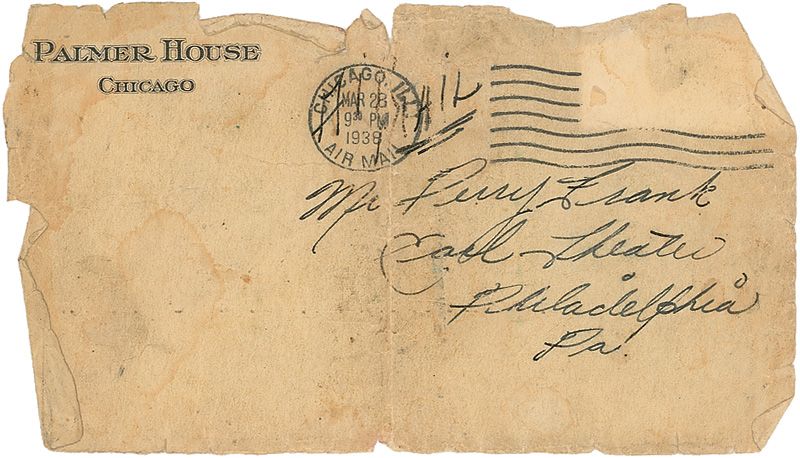 PALMER HOUSE
CHICAGO
CHICAGO, ILL.
MAR 28
9 30 PM
1938
AIR MAIL
Mr Perry Frank
Earl Theater
Philadelphia
Pa.